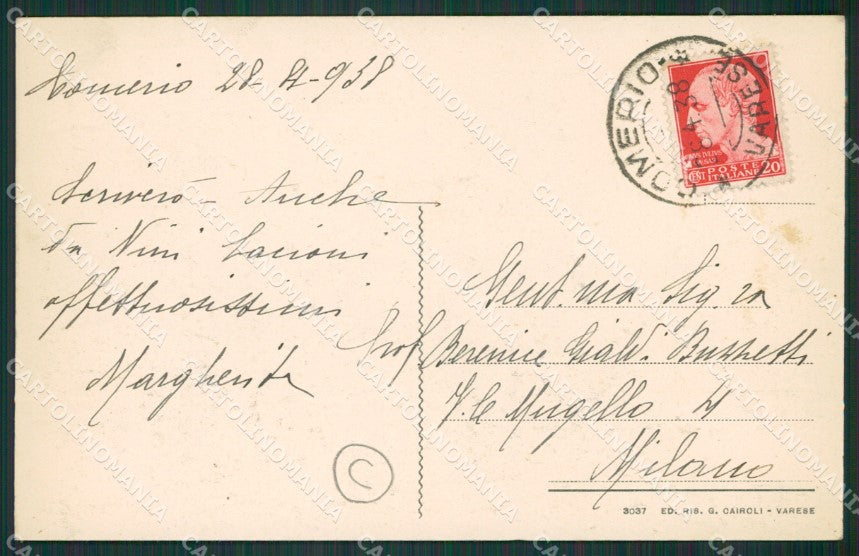 Comerio 28-4-938
Scriverò - Anche
da Nini bacioni
affettuosissimi
Margherita
COMERIO - VARESE
4 38
POSTE
ITALIANE
CENT 20
Gent.ma Sig.ra
Prof Berenice Gialdi Buzzetti
V.le Mugello 4
Milano
3037 ED. RIS. G. CAIROLI - VARESE
C
CARTOLINOMANIA